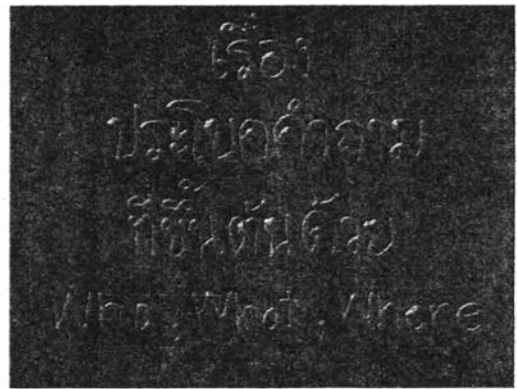 เรื่อง
ประโยคคำถาม
ที่ขึ้นต้นด้วย
Who, What, Where